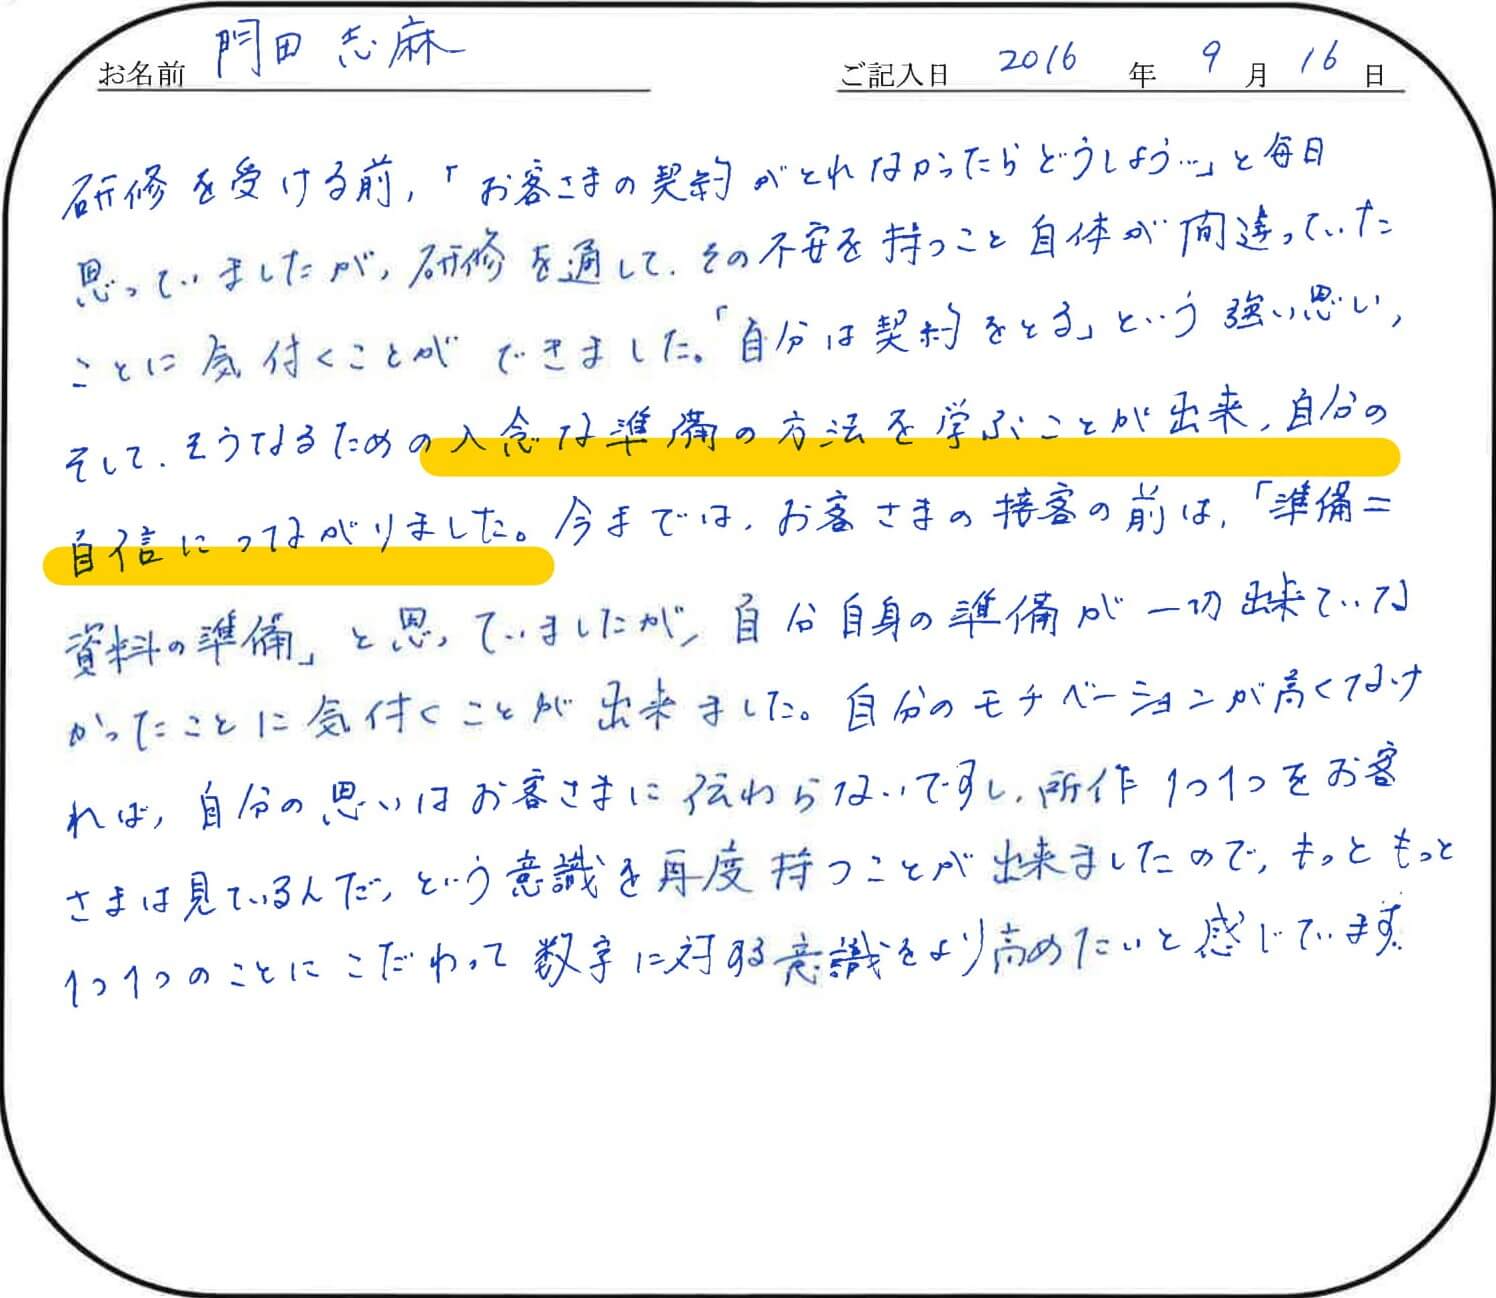 お名前 門田 志麻 ご記入日 2016 年 9 月 16 日
研修を受ける前,「お客さまの契約がとれなかったらどうしよう…」と毎日
思っていましたが, 研修を通して, その不安を持つこと自体が間違っていた
ことに気付くことができました。「自分は契約をとる」という強い思い,
そして, そうなるための入念な準備の方法を学ぶことが出来, 自分の
自信につながりました。今までは, お客さまの接客の前は,「準備=
資料の準備」と思っていましたが, 自分自身の準備が一切出来ていな
かったことに気付くことが出来ました。自分のモチベーションが高くなけ
れば, 自分の思いはお客さまに伝わらないですし, 所作1つ1つをお客
さまは見ているんだ, という意識を再度持つことが出来ましたので, もっともっと
1つ1つのことにこだわって数字に対する意識をより高めたいと感じています。